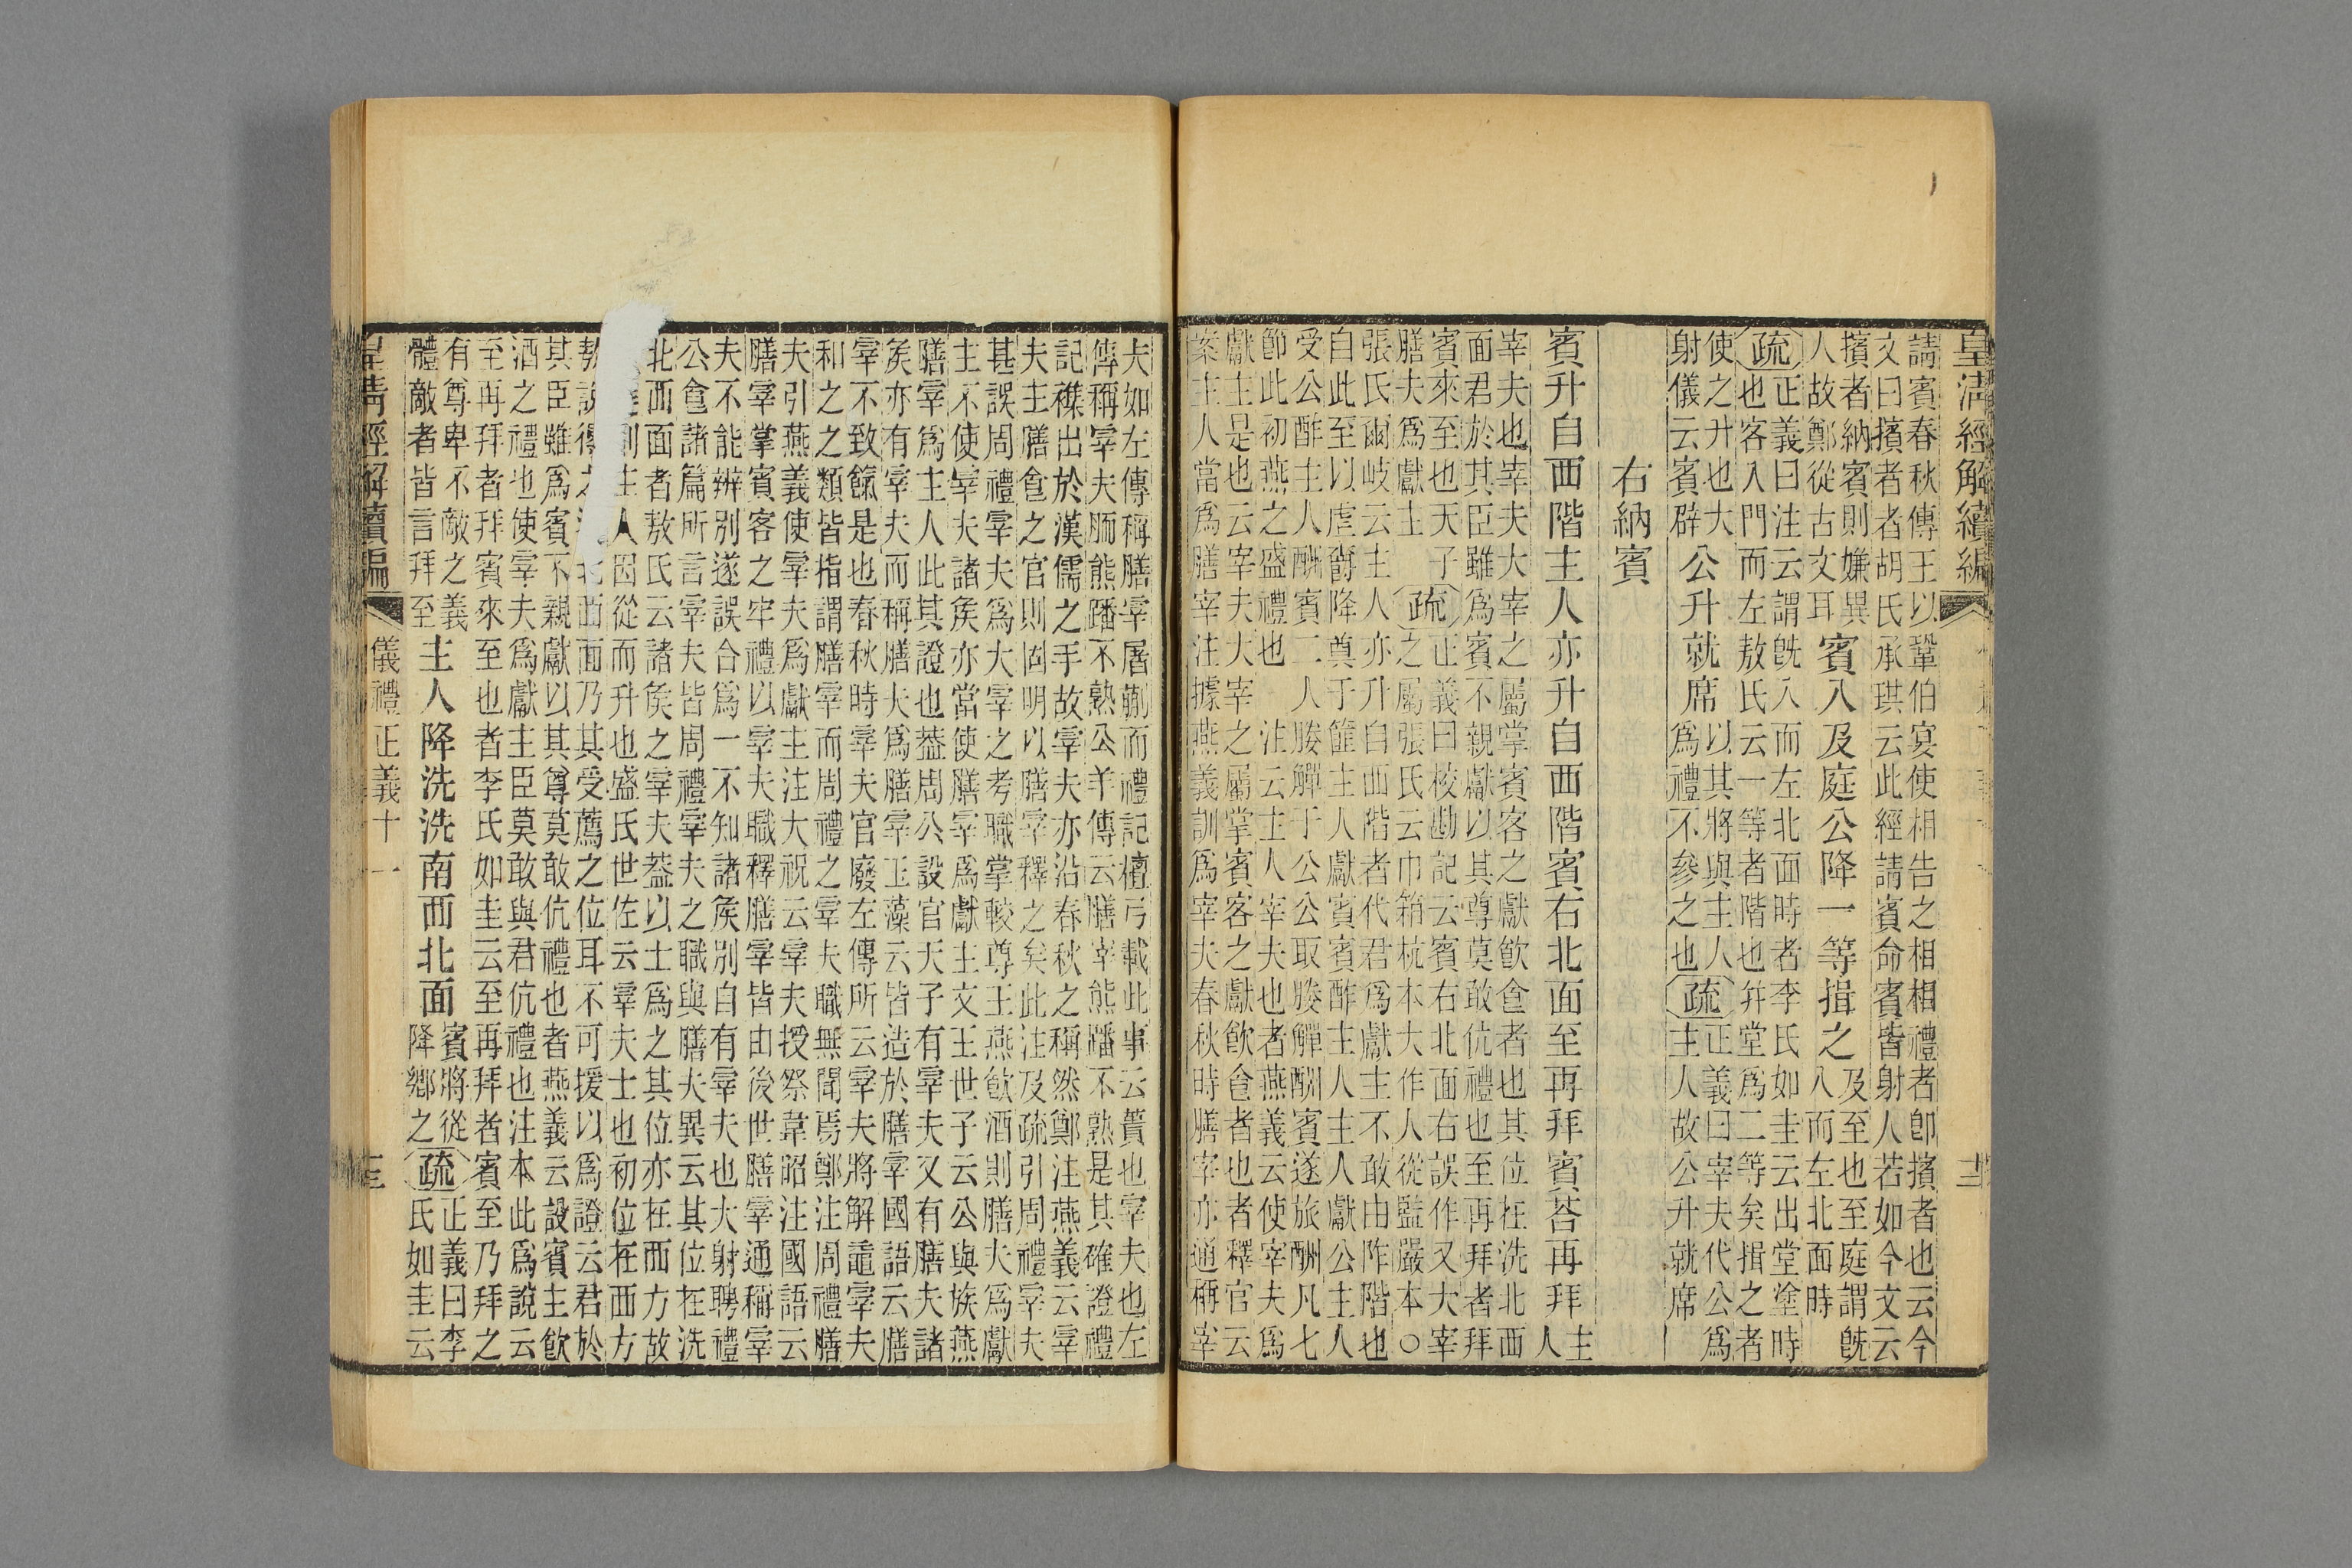 皇清經解續編
三
請賓春秋傳王以鞏伯宴使相告之相相禮者卽擯者也云今
文曰擯者者胡氏承珙云此經請賓命賓皆射人若如今文云
擯者納賓則嫌異
人故鄭從古文耳
賓入及庭公降一等揖之
及至也至庭謂旣
入而左北面時
疏
正義曰注云謂旣入而左北面時者李氏如圭云出堂塗時
也客入門而左敖氏云一等者階也幷堂爲二等矣揖之者
使之升也大
射儀云賓辟
公升就席
以其將與主人
爲禮不參之也
疏
正義曰宰夫代公爲
主人故公升就席
右納賓
賓升自西階主人亦升自西階賓右北面至再拜賓荅再拜
主
人
宰夫也宰夫大宰之屬掌賓客之獻飮食者也其位在洗北西
面君於其臣雖爲賓不親獻以其尊莫敢伉禮也至再拜者拜
賓來至也天子
膳夫爲獻主
疏
正義曰校勘記云賓右北面右誤作又大宰
之屬張氏云巾箱杭本大作人從監嚴本○
張氏爾岐云主人亦升自西階者代君爲獻主不敢由阼階也
自此至以虛爵降奠于篚主人獻賓賓酢主人主人獻公主人
受公酢主人酬賓二人媵觶于公公取媵觶酬賓遂旅酬凡七
節此初燕之盛禮也 注云主人宰夫也者燕義云使宰夫爲
獻主是也云宰夫大宰之屬掌賓客之獻飮食者也者釋官云
案主人當爲膳宰注據燕義訓爲宰夫春秋時膳宰亦通稱宰
夫如左傳稱膳宰屠蒯而禮記檀弓載此事云蕢也宰夫也左
傳稱宰夫胹熊蹯不熟公羊傳云膳宰熊蹯不熟是其確證禮
記襍出於漢儒之手故宰夫亦沿春秋之稱然鄭注燕義云宰
夫主膳食之官則固明以膳宰釋之矣此注及疏引周禮宰夫
甚誤周禮宰夫爲大宰之考職掌較尊王燕飮酒則膳夫爲獻
主不使宰夫諸矦亦當使膳宰爲獻主文王世子云公與族燕
膳宰爲主人此其證也葢周公設官天子有宰夫又有膳夫諸
矦亦有宰夫而稱膳夫爲膳宰玉藻云皆造於膳宰國語云膳
宰不致餼是也春秋時宰夫官廢左傳所云宰夫將解黿宰夫
和之之類皆指謂膳宰而周禮之宰夫職無聞焉鄭注周禮膳
夫引燕義使宰夫爲獻主注大祝云宰夫授祭韋昭注國語云
膳宰掌賓客之牢禮以宰夫職釋膳宰皆由後世膳宰通稱宰
夫不能辨別遂誤合爲一不知諸矦別自有宰夫也大射聘禮
公食諸篇所言宰夫皆周禮宰夫之職與膳夫異云其位在洗
北西面者敖氏云諸矦之宰夫葢以士爲之其位亦在西方故
則主人因從而升也盛氏世佐云宰夫士也初位在西方
敖說得之北西面乃其受薦之位耳不可援以爲證云君於
其臣雖爲賓不親獻以其尊莫敢伉禮也者燕義云設賓主飮
酒之禮也使宰夫爲獻主臣莫敢與君伉禮也注本此爲說云
至再拜者拜賓來至也者李氏如圭云至再拜者賓至乃拜之
有尊卑不敵之義
體敵者皆言拜至
主人降洗洗南西北面
賓將從
降鄕之
疏
正義曰李
氏如圭云
皇清經解續編
儀禮正義十一
三